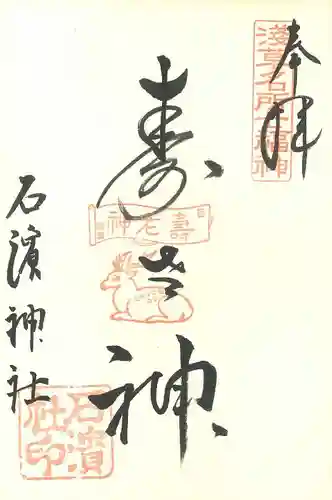 奉拝
淺草名所七福神
寿老神
壽老神
石濱神社
石濱社印